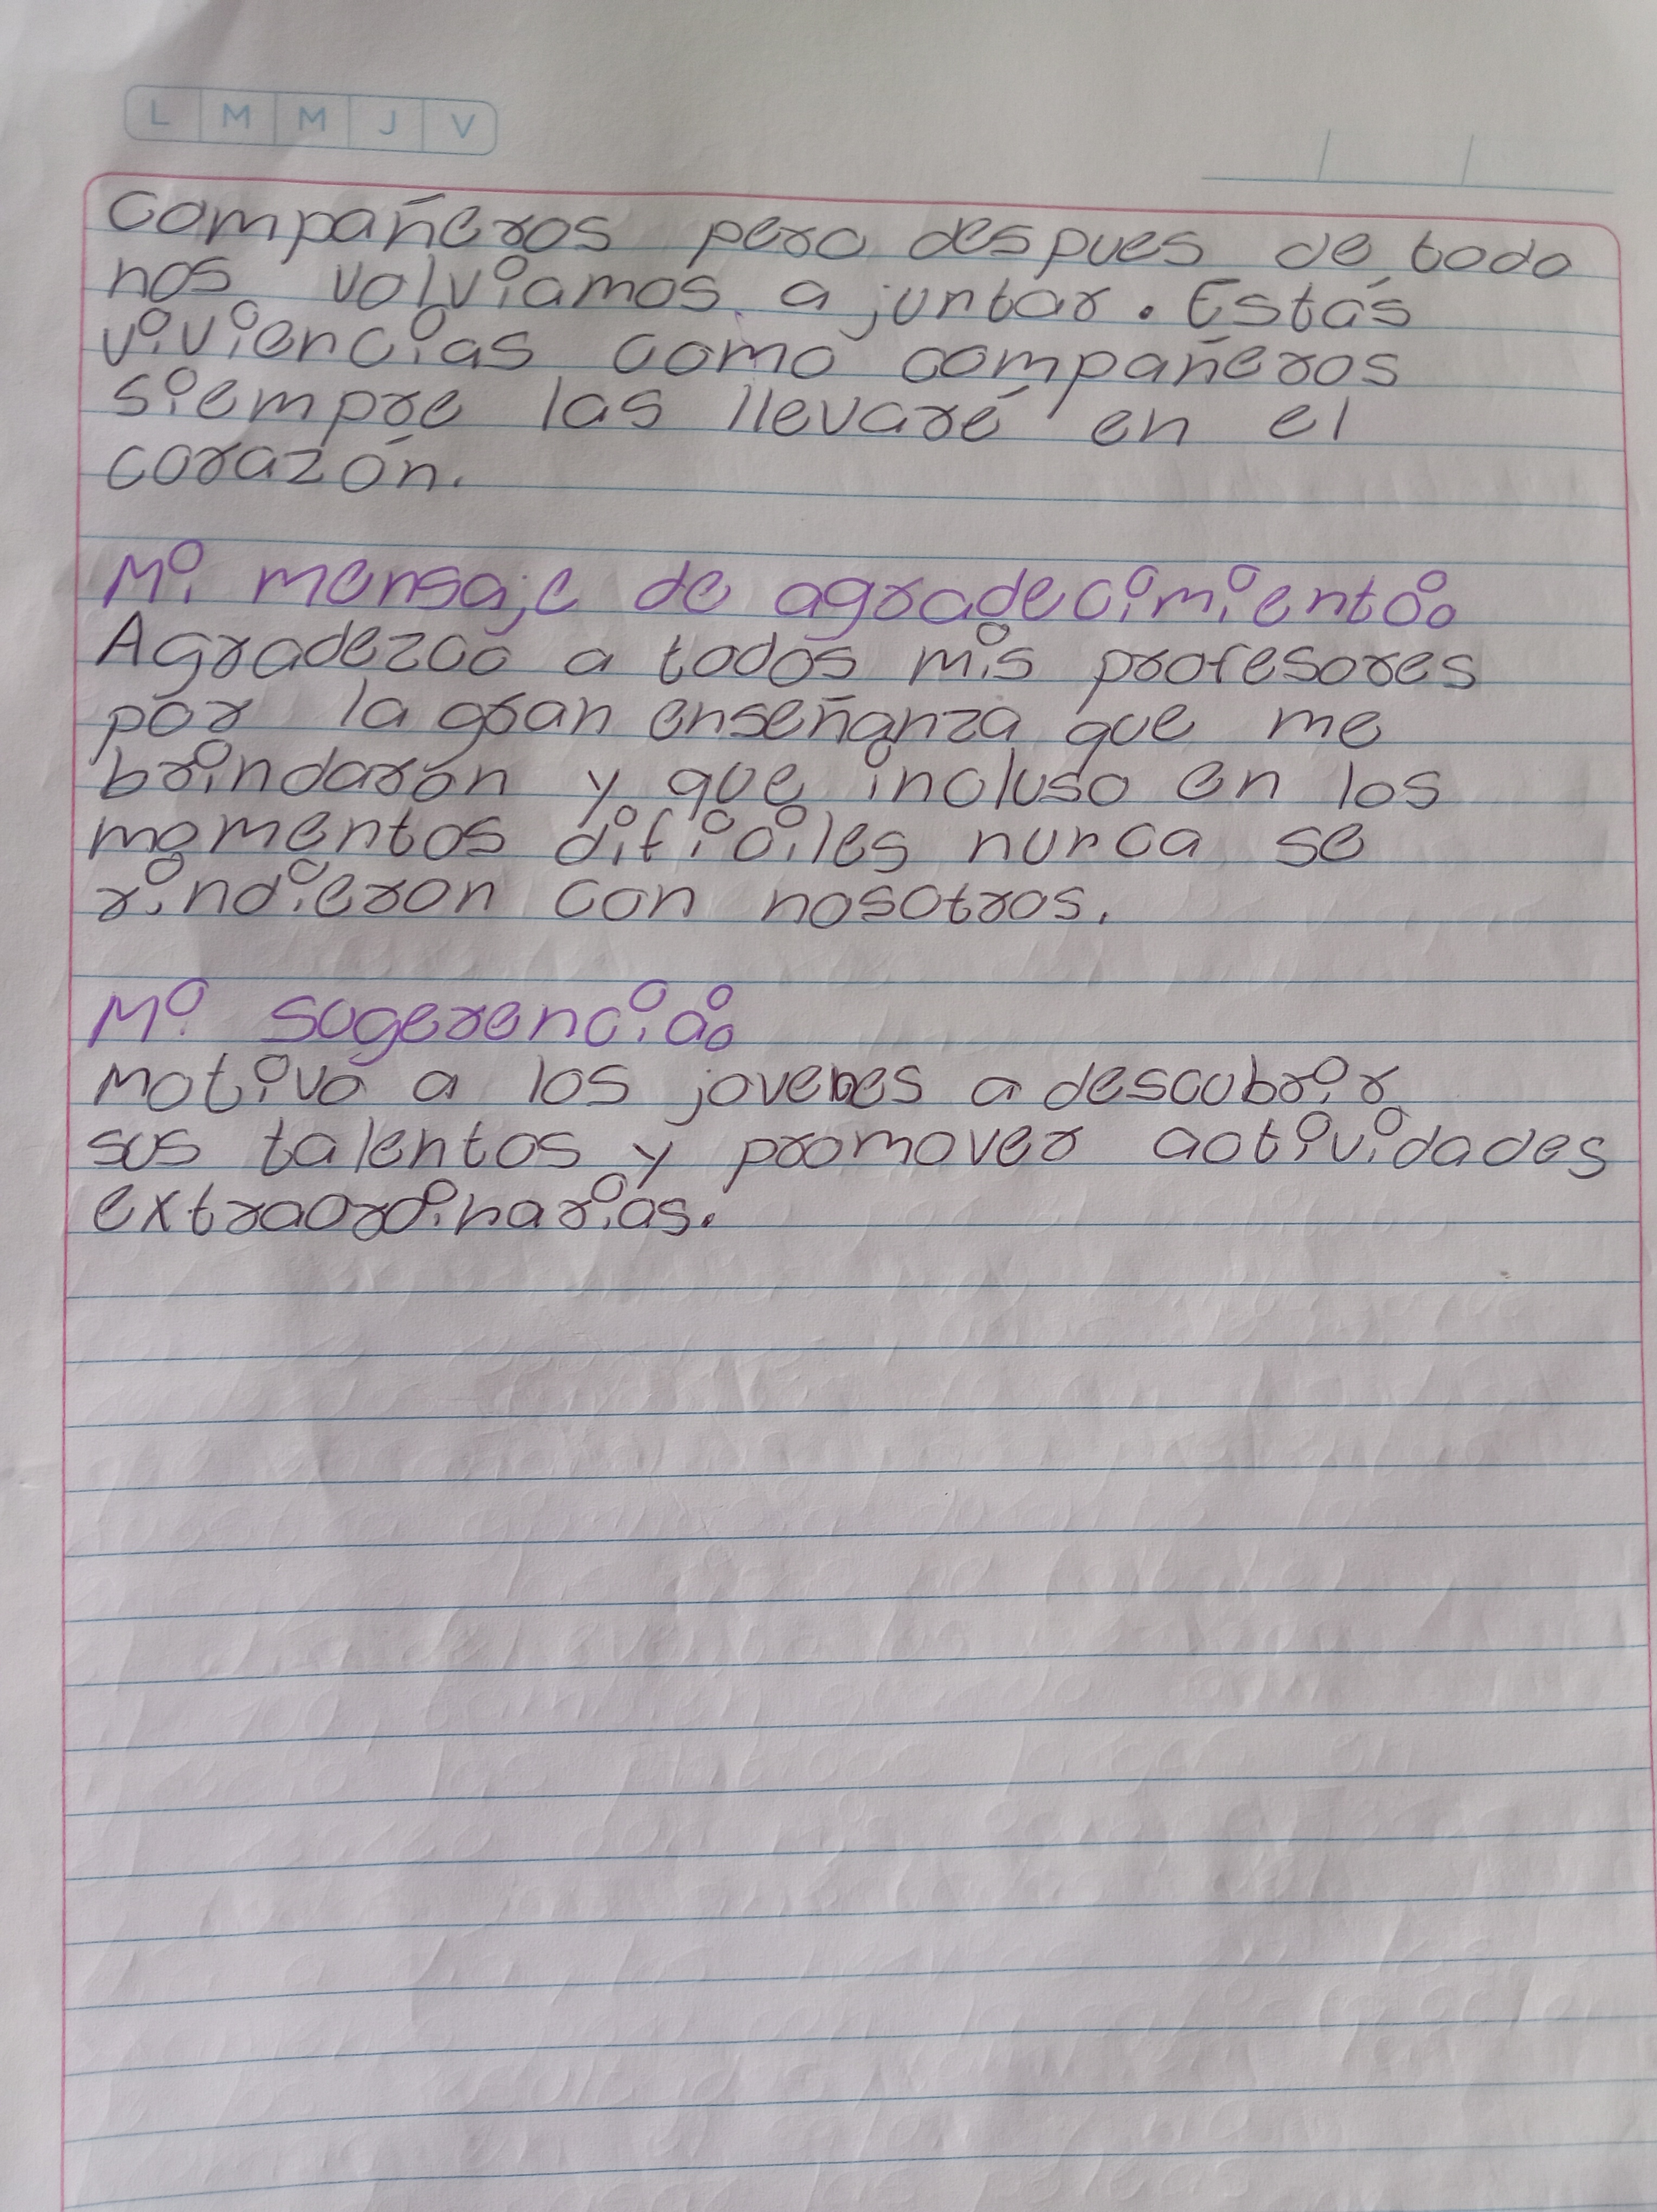 L M M J V
Compañeros pero despues de todo
nos volviamos a juntar. Estás
viviencias como compañeros
siempre las llevaré en el
corazón.
Mi mensaje de agradecimiento:
Agradezco a todos mis profesores
por la gran enseñanza que me
brindaron y que incluso en los
momentos dificiles nunca se
rindieron con nosotros.
Mi sugerencia:
Motivo a los jovenes a descubrir
sus talentos y promover actividades
extraordinarias.